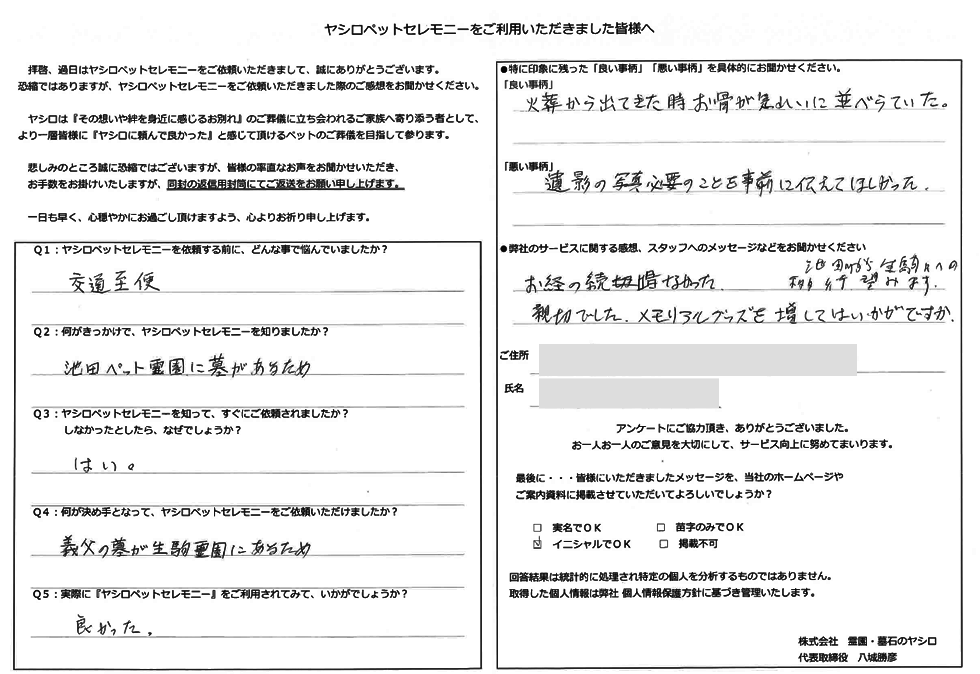 ヤシロペットセレモニーをご利用いただきました皆様へ
拝啓、過日はヤシロペットセレモニーをご依頼いただきまして、誠にありがとうございます。
恐縮ではありますが、ヤシロペットセレモニーをご依頼いただきました際のご感想をお聞かせください。
ヤシロは『その想いや絆を身近に感じるお別れ』のご葬儀に立ち会われるご家族へ寄り添う者として、
より一層皆様に『ヤシロに頼んで良かった』と感じて頂けるペットのご葬儀を目指して参ります。
悲しみのところ誠に恐縮ではございますが、皆様の率直なお声をお聞かせいただき、
お手数をお掛けいたしますが、同封の返信用封筒にてご返送をお願い申し上げます。
一日も早く、心穏やかにお過ごし頂けますよう、心よりお祈り申し上げます。
Q1:ヤシロペットセレモニーを依頼する前に、どんな事で悩んでいましたか?
交通至便
Q2:何がきっかけで、ヤシロペットセレモニーを知りましたか?
池田ペット霊園に墓があるため
Q3:ヤシロペットセレモニーを知って、すぐにご依頼されましたか?
しなかったとしたら、なぜでしょうか?
はい。
Q4:何が決め手となって、ヤシロペットセレモニーをご依頼いただけましたか?
義父の墓が生駒霊園にあるため
Q5:実際に『ヤシロペットセレモニー』をご利用されてみて、いかがでしょうか?
良かった。
●特に印象に残った「良い事柄」「悪い事柄」を具体的にお聞かせください。
「良い事柄」
火葬から出てきた時お骨がきれいに並べらていた。
「悪い事柄」
遺影の写真必要のことを事前に伝えてほしかった。
●弊社のサービスに関する感想、スタッフへのメッセージなどをお聞かせください
池田から生駒への
お経の なかった 望みます。
親切でした。メモリアルグッズを増してはいかがですか。
ご住所
氏名
アンケートにご協力頂き、ありがとうございました。
お一人お一人のご意見を大切にして、サービス向上に努めてまいります。
最後に・・・皆様にいただきましたメッセージを、当社のホームページや
ご案内資料に掲載させていただいてよろしいでしょうか?
□ 実名でOK □ 苗字のみでOK
☑ イニシャルでOK □ 掲載不可
回答結果は統計的に処理され特定の個人を分析するものではありません。
取得した個人情報は弊社 個人情報保護方針に基づき管理いたします。
株式会社 霊園・墓石のヤシロ
代表取締役 八城勝彦